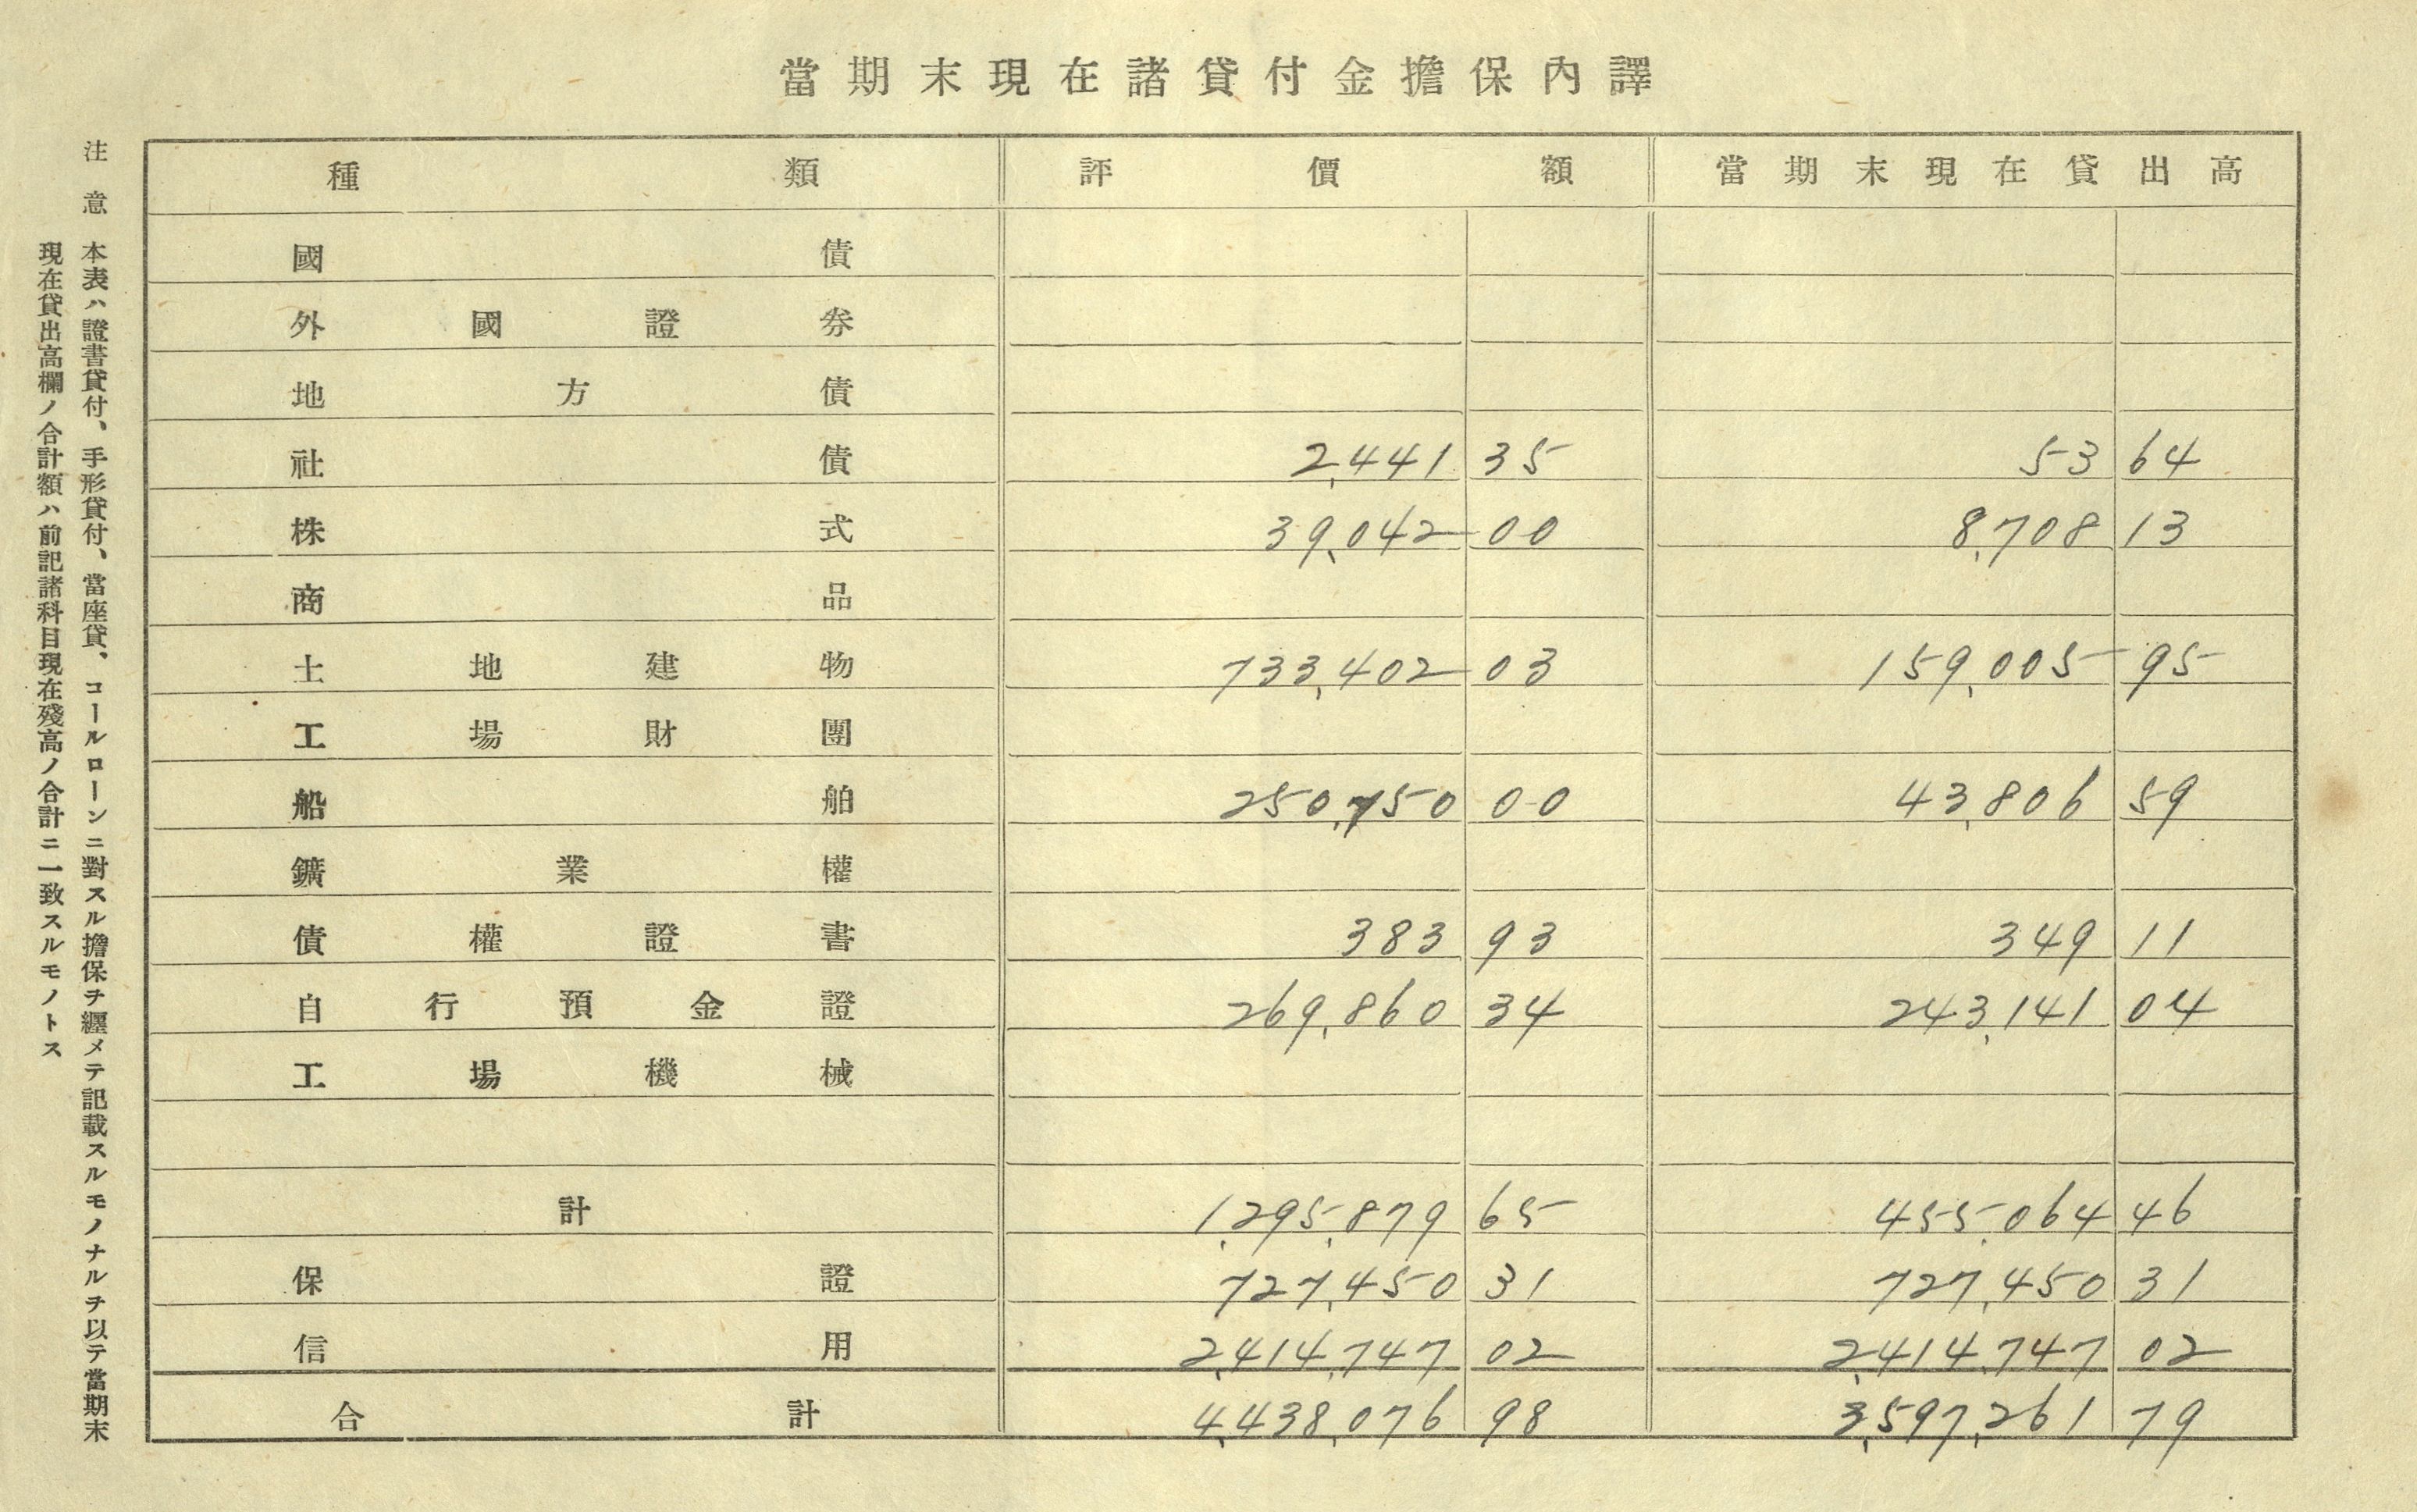 當期末現在諸貸付金擔保內譯
種類 評價額 當期末現在貸出高
國債
外國證券
地方債
社債 2,441 35 53 64
株式 39,042 00 8,708 13
商品
土地建物 733,402 03 159,005 95
工場財團
船舶 250,750 00 43,806 59
鑛業權
債權證書 383 93 349 11
自行預金證 269,860 34 243,141 04
工場機械
計 1,295,879 65 455,064 46
保證 727,450 31 727,450 31
信用 2,414,747 02 2,414,747 02
合計 4,438,076 98 3,597,261 79
注意 本表ハ證書貸付、手形貸付、當座貸、コールローンニ對スル擔保ヲ纒メテ記載スルモノナルヲ以テ當期末
現在貸出高欄ノ合計額ハ前記諸科目現在殘高ノ合計ニ一致スルモノトス